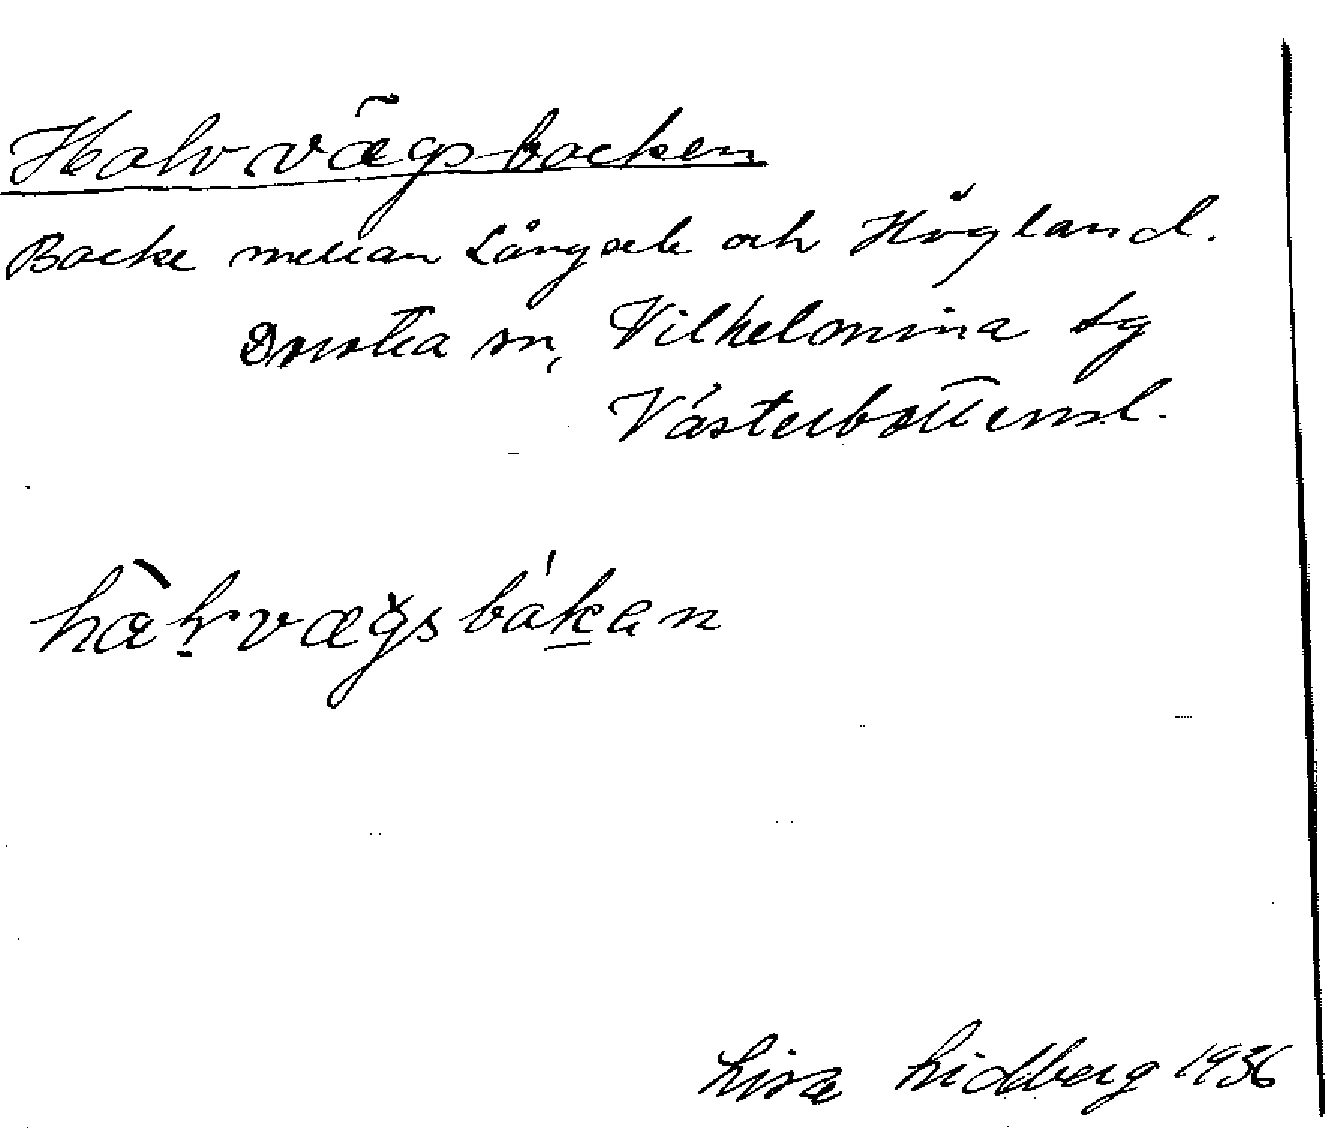 Halvvägsbacken
Backe mellan Långsele och Högland.
Dorotea sn, Vilhelmina tg
Västerbottensl.
hàḷvægsbákan
Lisa Lidberg 1936